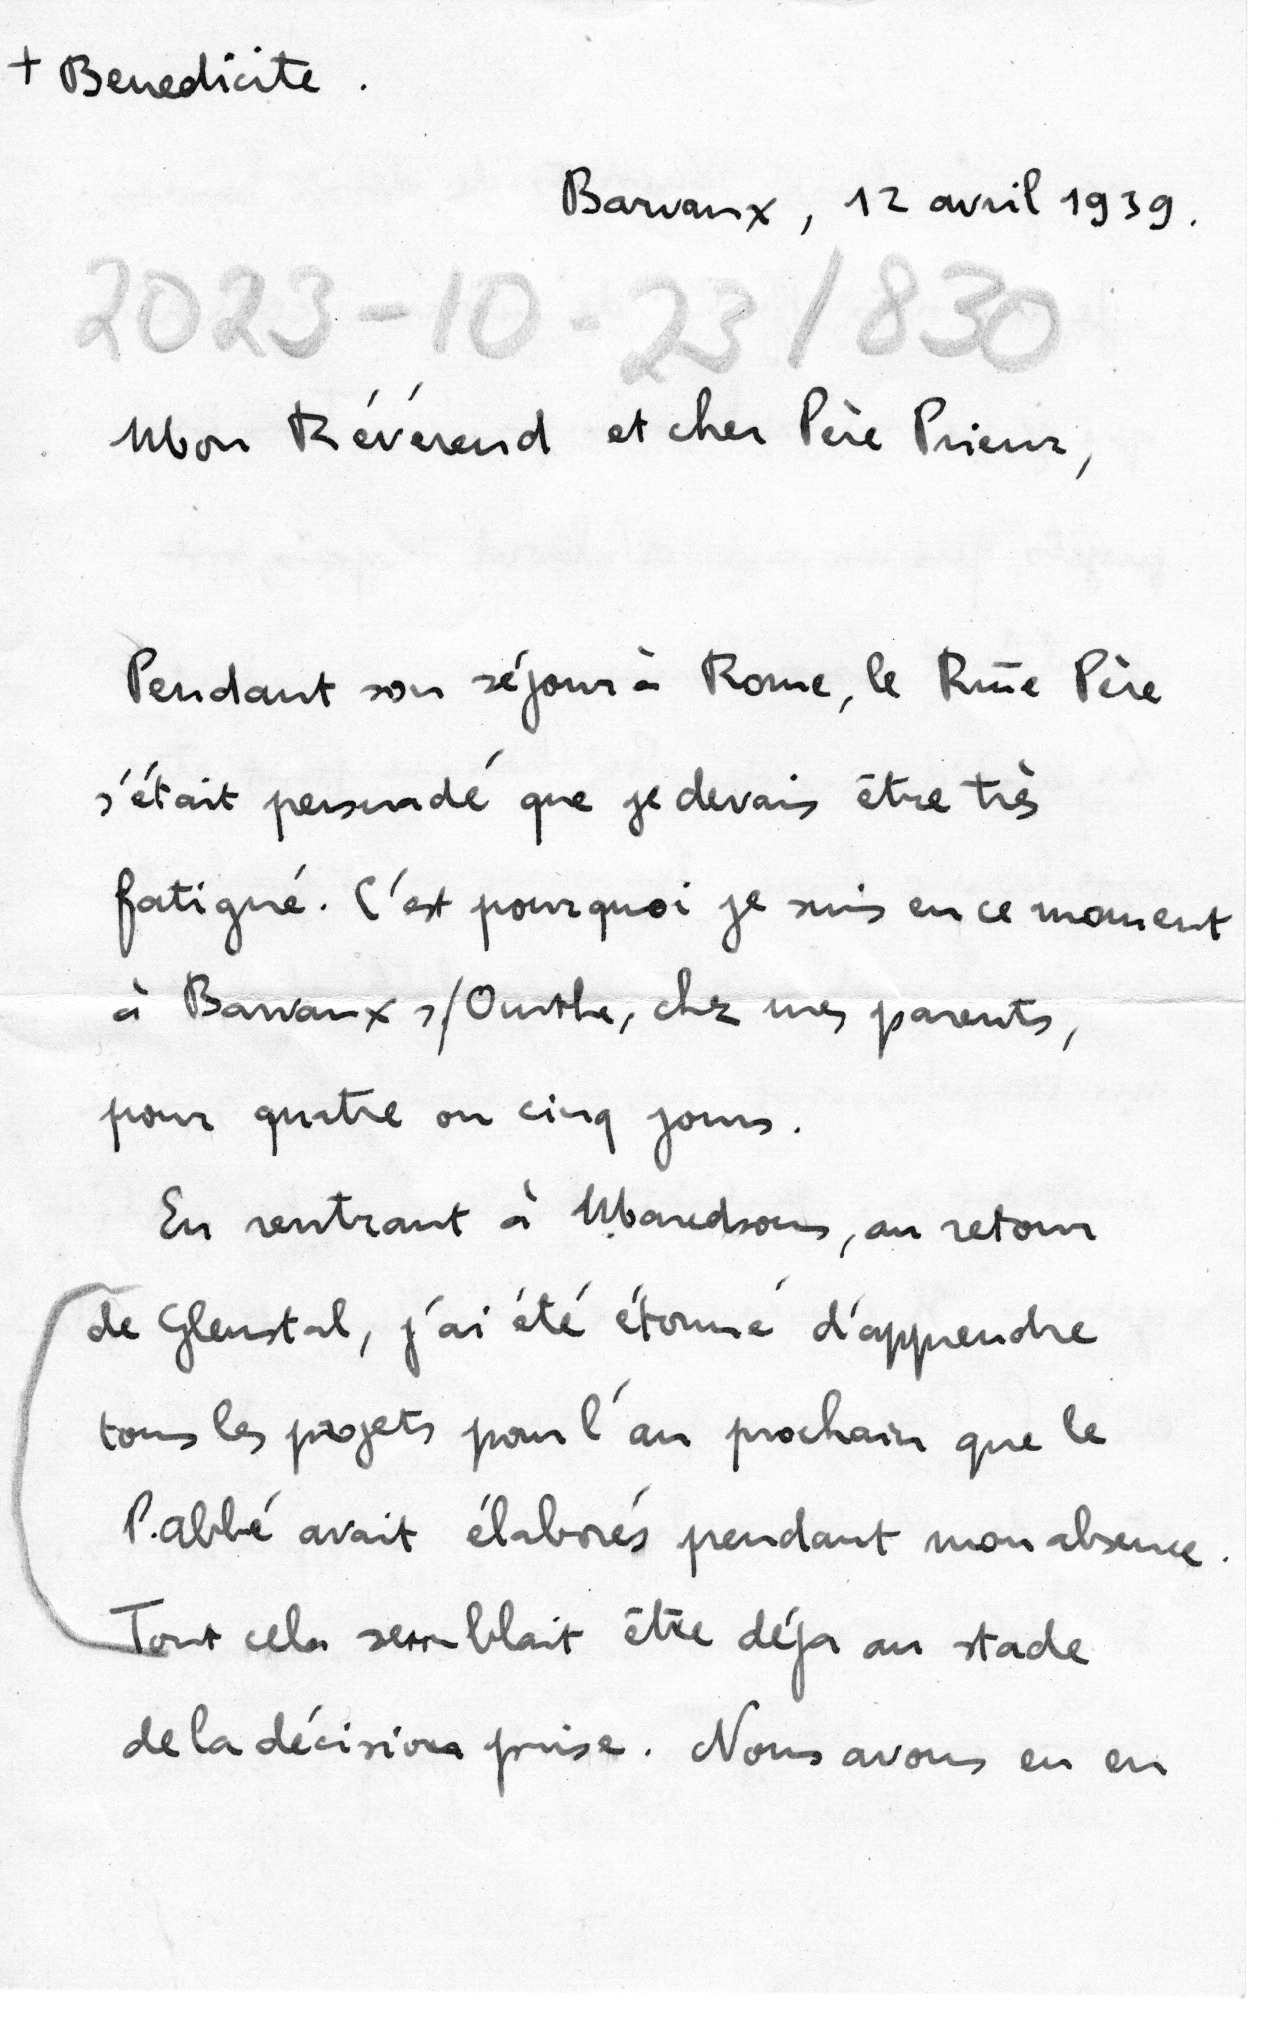 + Benedicite.
Barvaux, 12 avril 1939.
2023-10-23/830
Mon Révérend et cher Père Prieur,
Pendant son séjour à Rome, le Rme Père
s'était persuadé que je devais être très
fatigué. C'est pourquoi je suis en ce moment
à Barvaux s/Ourthe, chez mes parents,
pour quatre ou cinq jours.
En rentrant à Maredsous, au retour
de Glenstal, j'ai été étonné d'apprendre
tous les projets pour l'an prochain que le
P. Abbé avait élaborés pendant mon absence.
Tout cela semblait être déja au stade
de la décision prise. Nous avons eu en